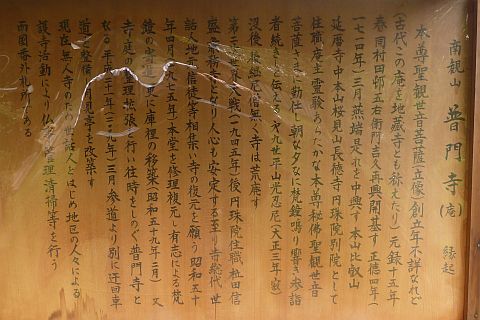 南観山 普門寺(庵) 縁起
本尊聖観世音菩薩(立像)創立年不詳なれど
(古代この庵を地蔵寺とも称えたり)元録十五年
春同村田邨五右衛門吉久再興開基す 正徳四年(
一七一四年)三月燕端是れを中興す 本山比叡山
延暦寺中本山桜見山長徳寺円珠院別院として
住職庵主霊験あらたかな本尊秘佛聖観世音
菩薩さまに勤仕し朝な夕なに梵鐘鳴り響き参詣
者続きしと伝える や九世平山光忍尼(大正三年寂)
没後 後継尼僧無く寺は荒廃す
第二次世界大戦(一九四五年)後円珠院住職
盛 兼務寺となり人心も安定するに至り寺総代 世
話人地元信徒等相集い寺の復元を願う 昭和五十
年四月(一九七五年)本堂を修理復元し有志による梵
鐘の 更に庫裡の移築(昭和五十九年三月) 又
寺庭の 理拡張 行い往時をしのぐ普門寺と
なる 平成 十 年( 九年)三月参道より別に迂回車
道を整備 月見亭を改築す
現在 無人寺のため世話人をはじめ地区の人々による
護寺活動により仏 管理清掃等を行う
両園番外札所である